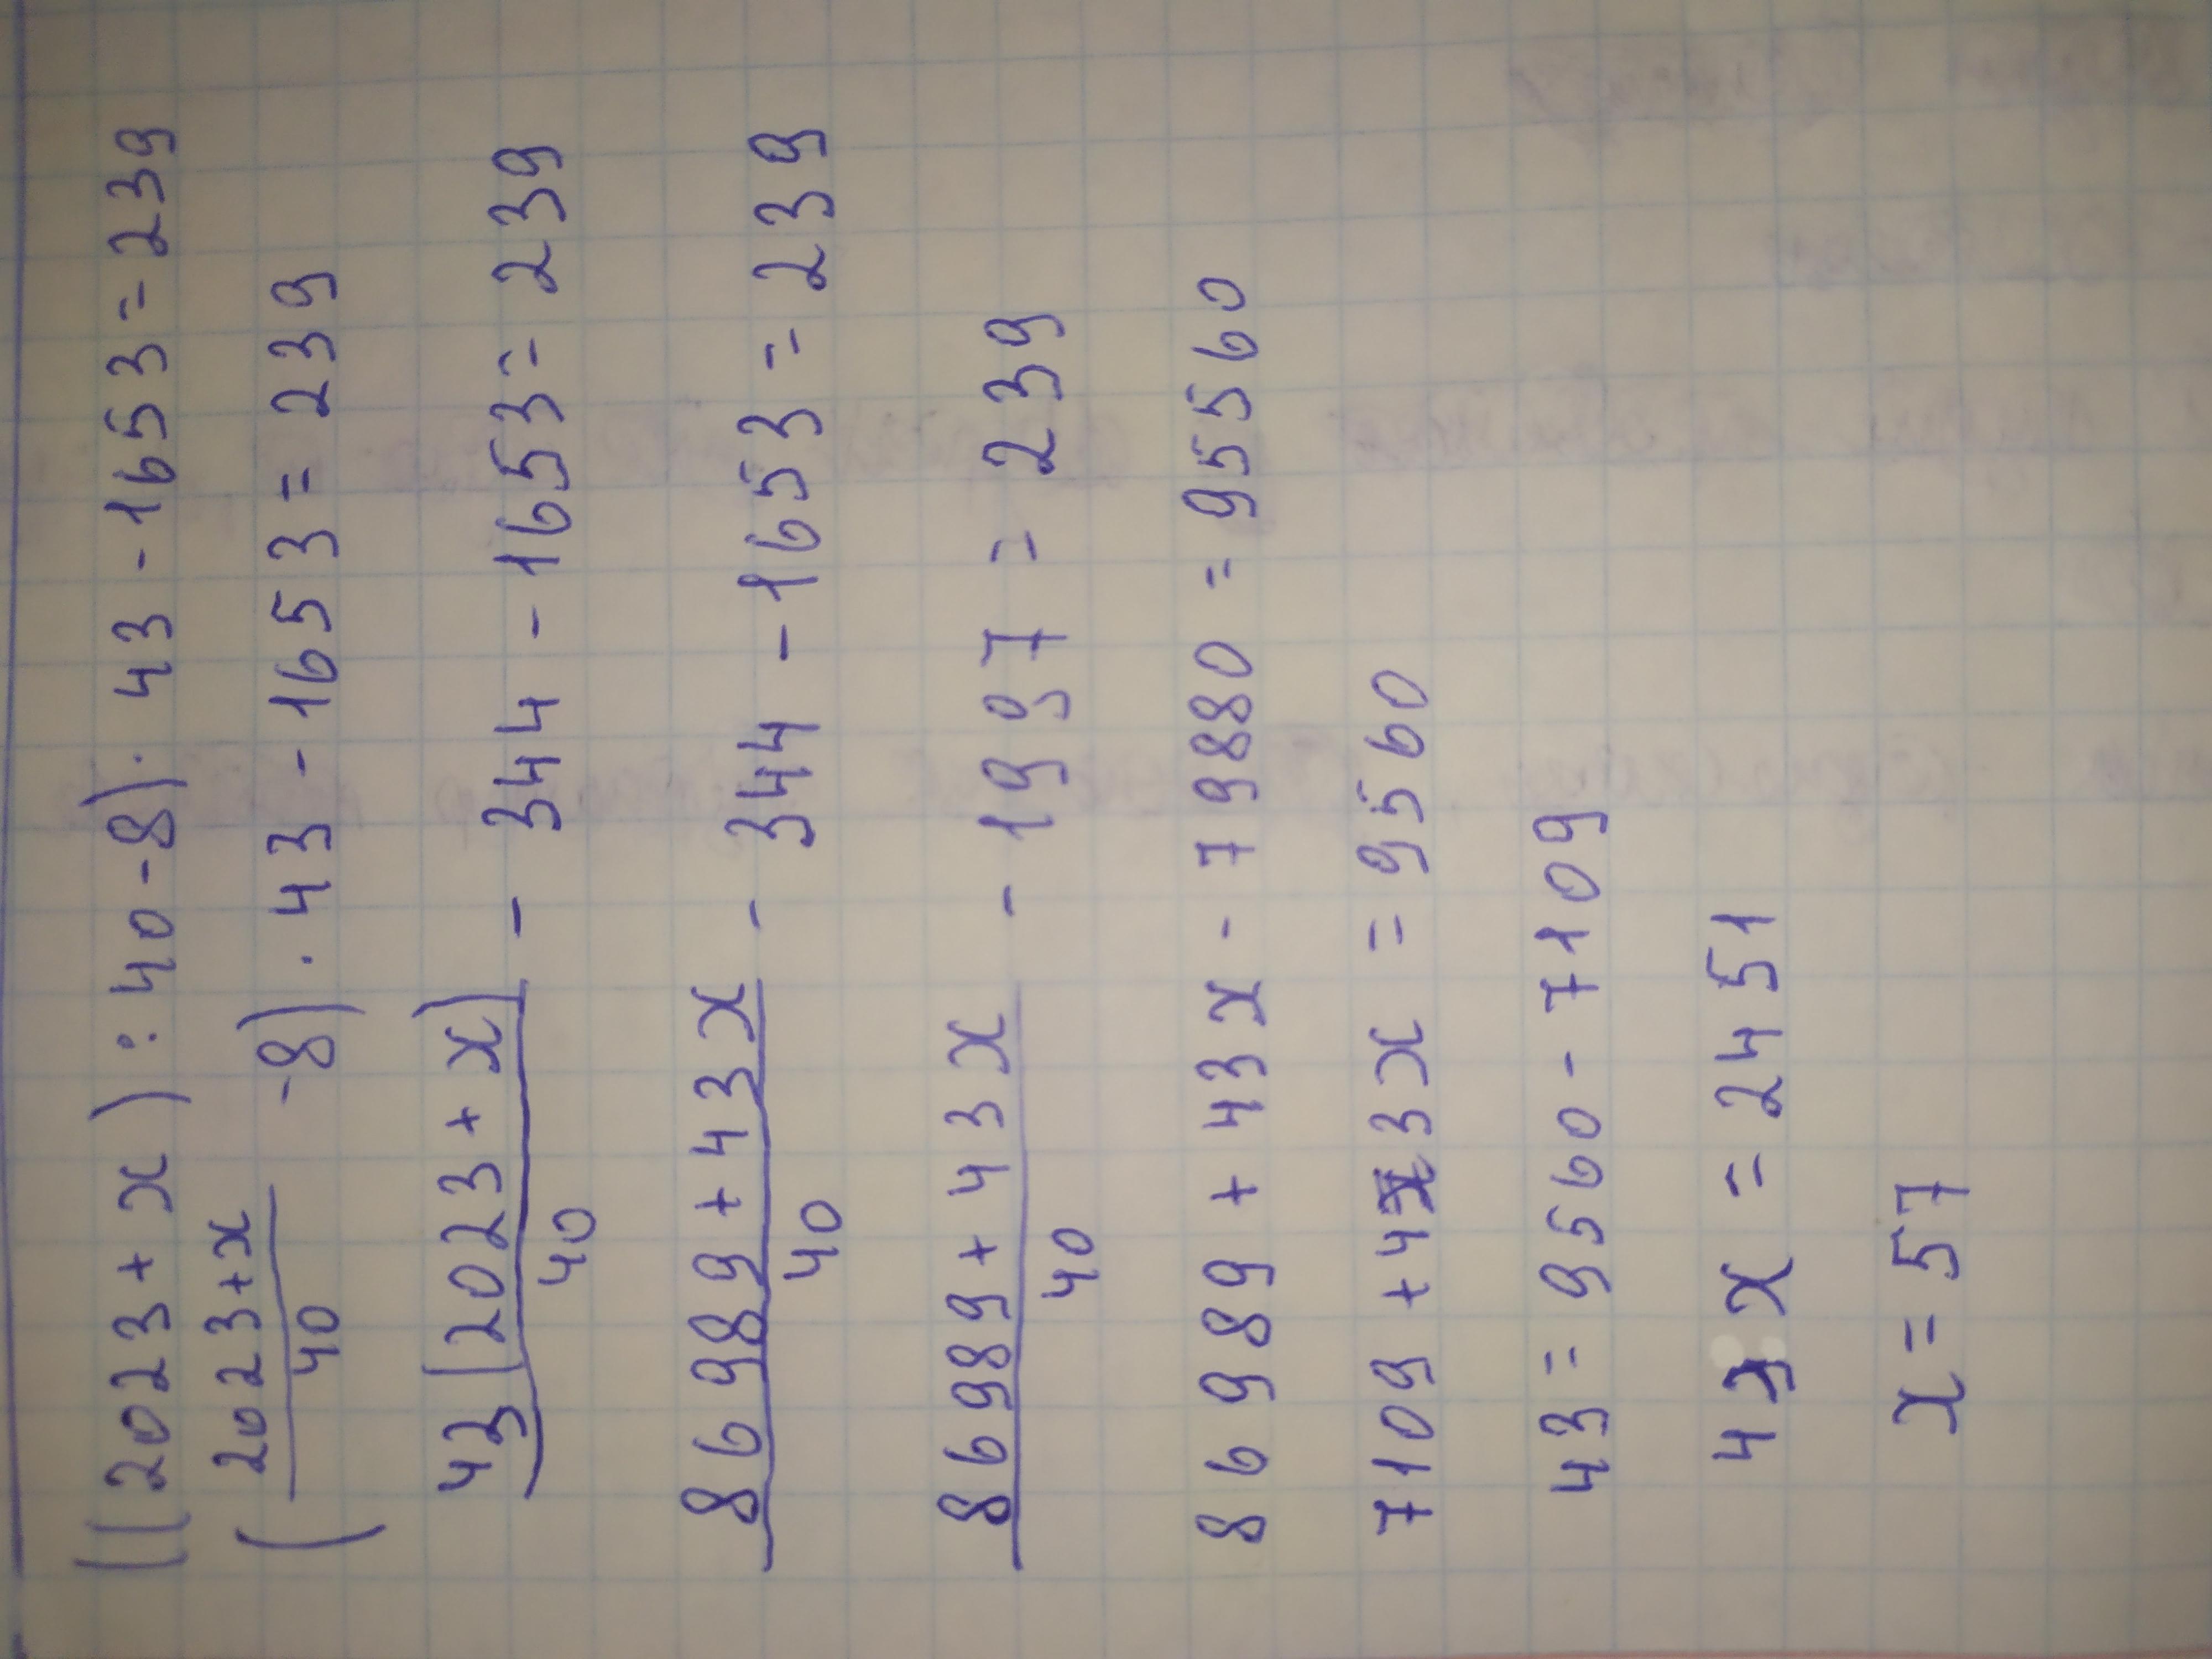 ((2023+x):40-8)·43-1653=239
(2023+x/40 -8)·43-1653=239
43(2023+x)/40 - 344-1653=239
86989+43x/40 - 344-1653=239
86989+43x/40 - 1997=239
86989+43x-79880=95560
7109+43x=9560
43=9560-7109
43x=2451
x=57